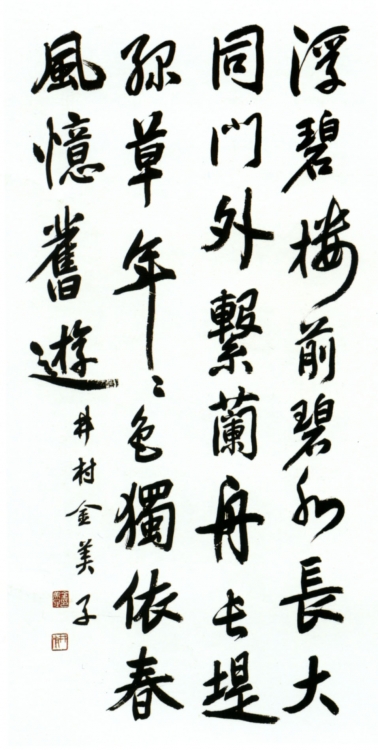 浮碧楼前碧水長大
同門外繋蘭舟長堤
草年〻色獨依春
風憶舊遊
井村金美子